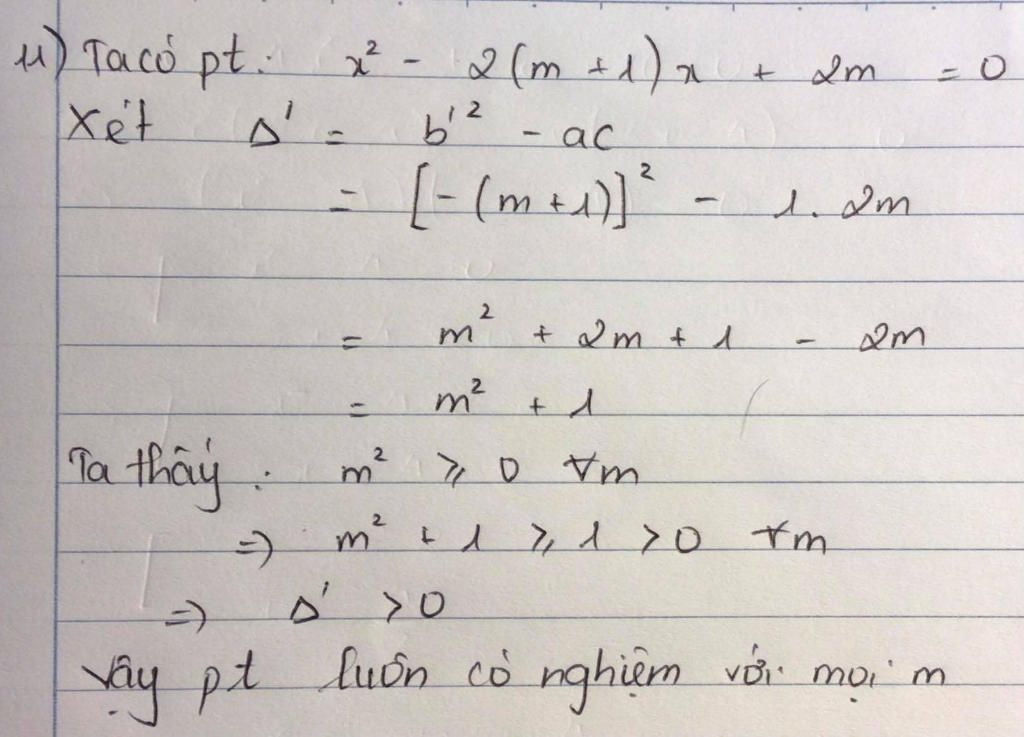 11) Ta có pt: x² - 2(m+1)x + 2m = 0
Xét Δ' = b'² - ac
= [-(m+1)]² - 1. 2m
= m² + 2m + 1 - 2m
= m² + 1
Ta thấy: m² ⩾ 0 ∀m
=> m² + 1 ⩾ 1 > 0 ∀m
=> Δ' > 0
Vậy pt luôn có nghiệm với mọi m